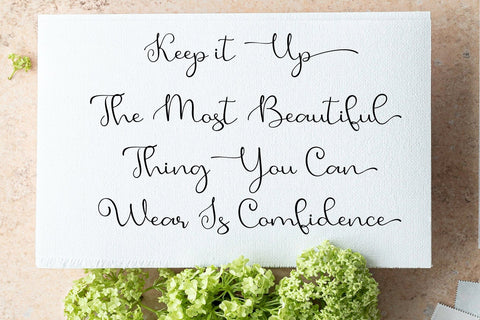 Keep it Up
The Most Beautiful
Thing You Can
Wear Is Comfidence